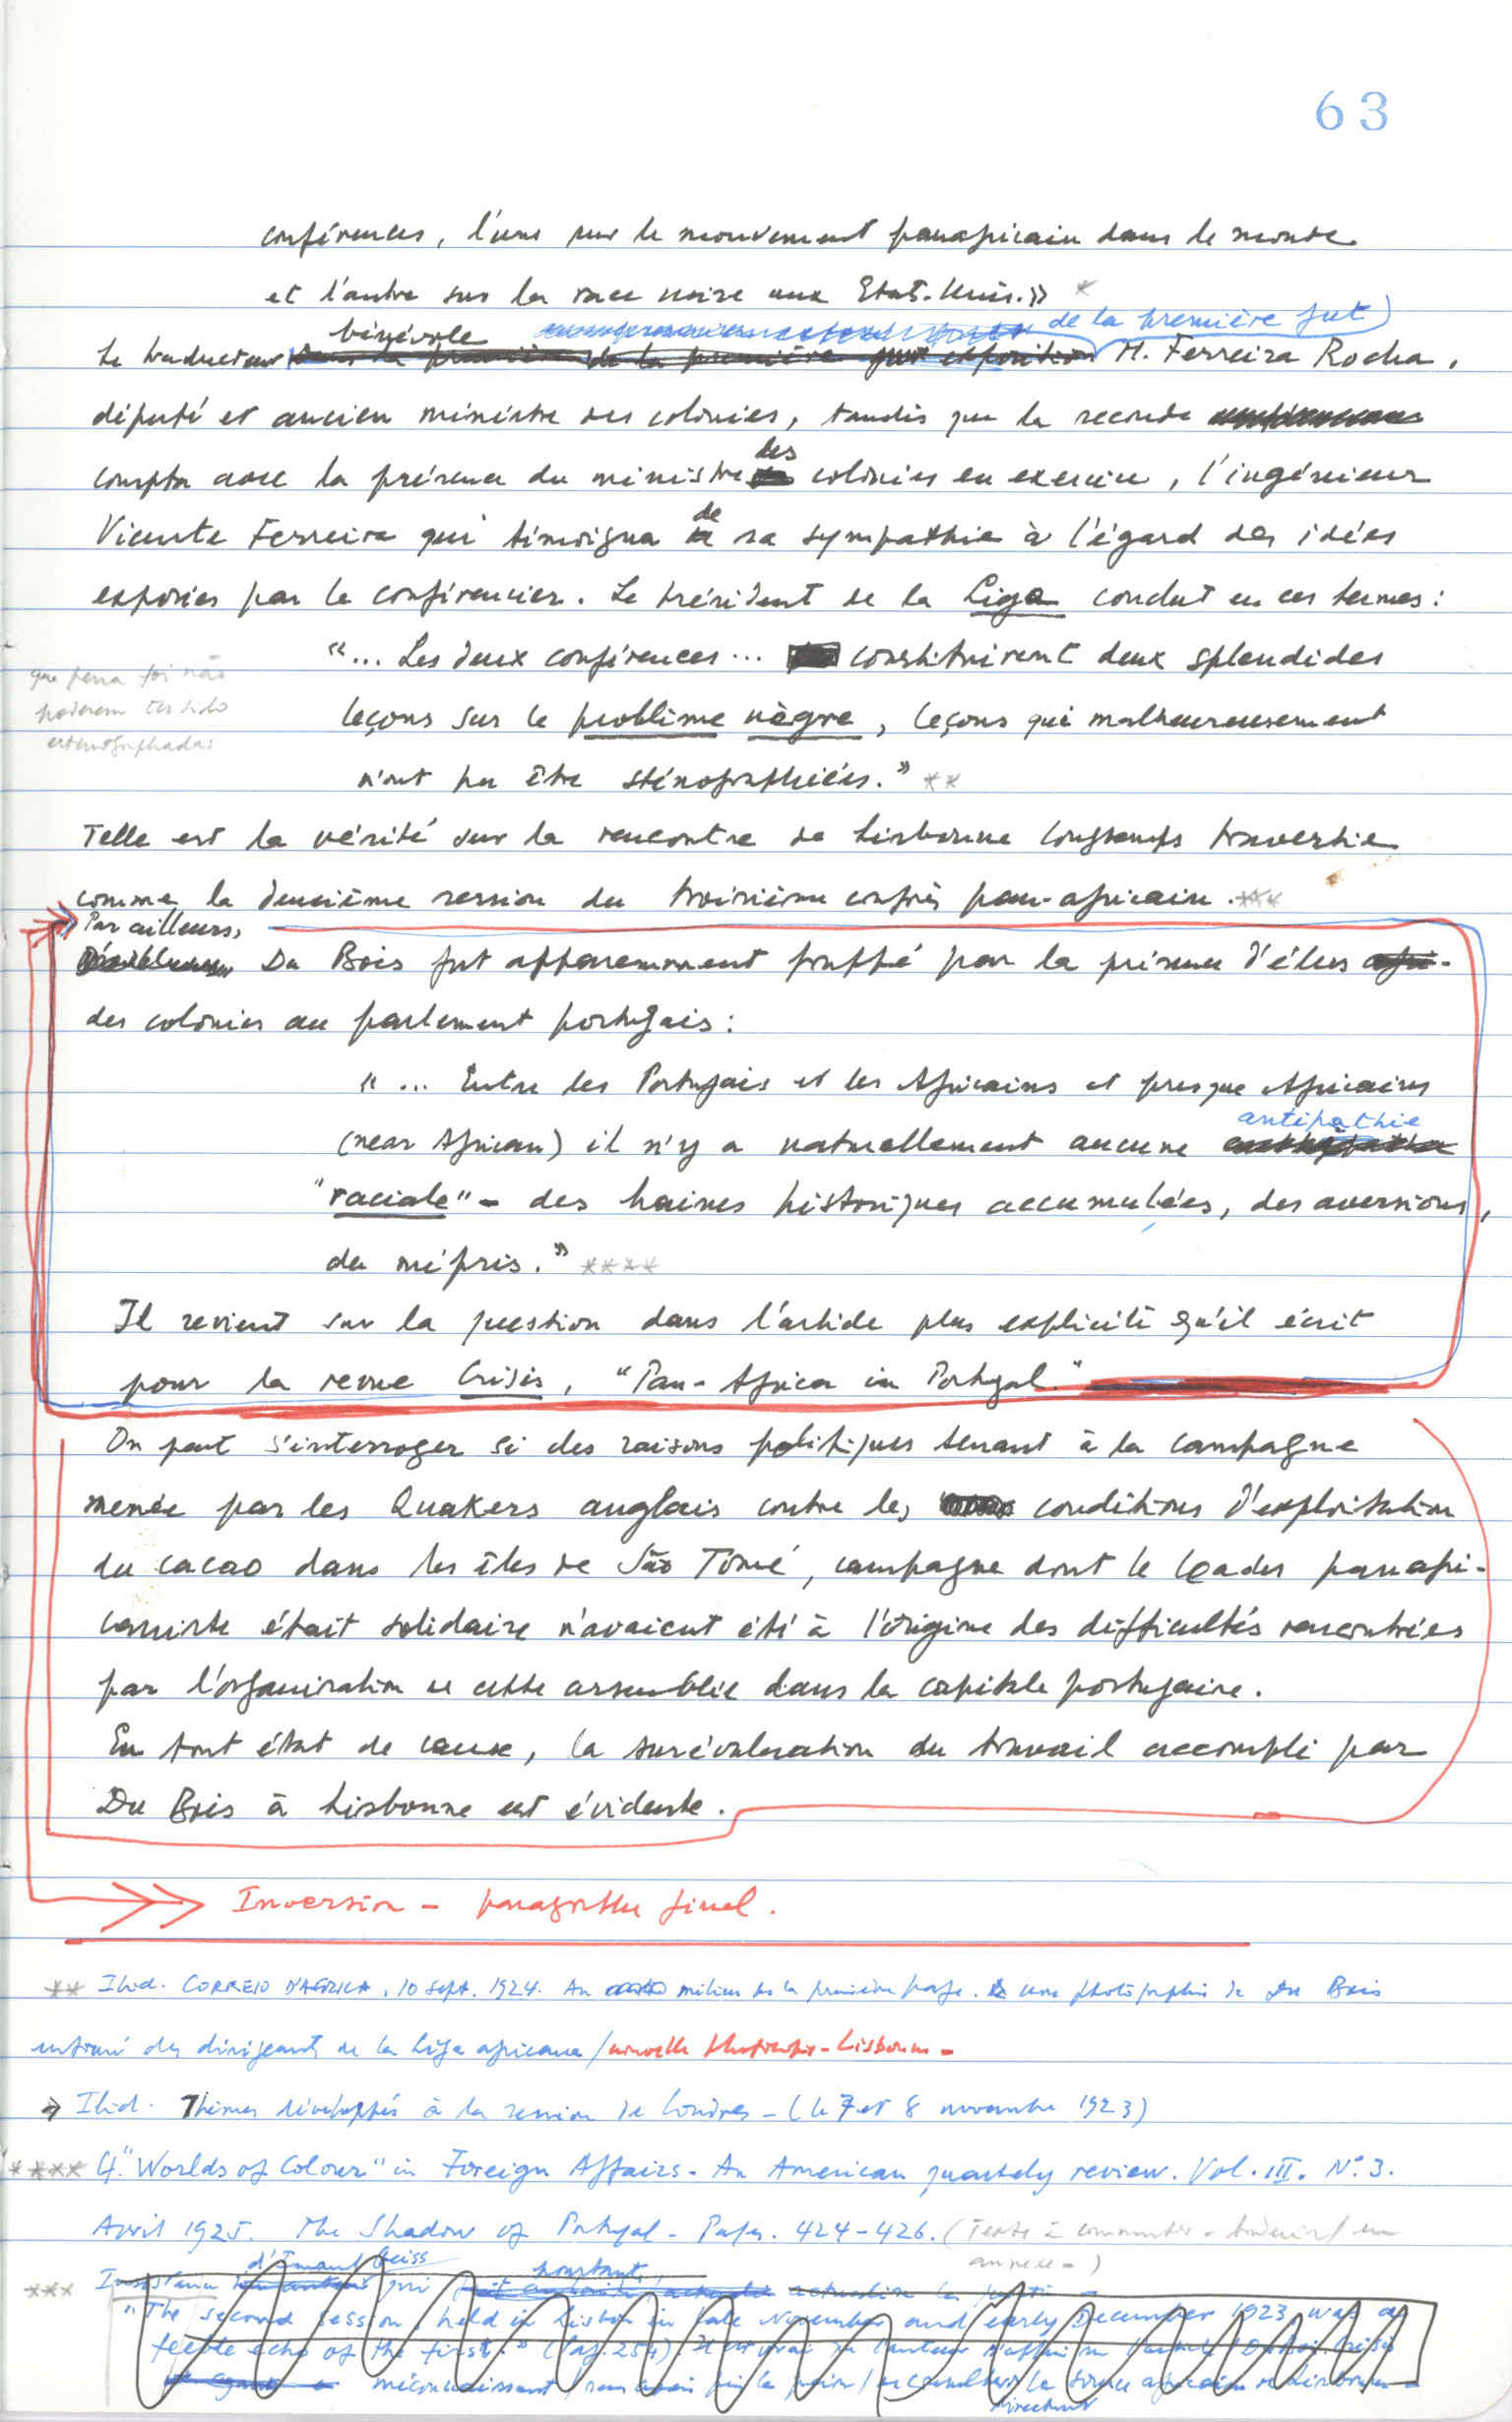 63
conférences, l'une sur le mouvement panafricain dans le monde
et l'autre sur la race noire aux Etats-Unis.» *
bénévole de la première fut
Le traducteur M. Ferreira Rocha,
député et ancien ministre des colonies, tandis que la seconde
des
compta avec la présence du ministre colonies en exercice, l'ingénieur
de
Vicente Ferreira qui témoigna sa sympathie à l'égard des idées
exposées par le conférencier. Le président de la Liga conclut en ces termes :
"... Les deux conférences ... constituirent deux splendides
que pena foi não
leçons sur le problème nègre, leçons qui malheureusement
poderem ter sido
estenografhadas
n'ont pu être sténographiées." **
Telle est la vérité sur la rencontre de Lisbonne longtemps travestie
comme la deuxième session du troisième congrès pan-africain. ***
Par ailleurs,
Du Bois fut apparemment frappé par la présence d'élus
des colonies au parlement portugais :
"... Entre les Portugais et les Africains et presque Africains
antipathie
(near African) il n'y a naturellement aucune
"raciale" - des haines historiques accumulées, des aversions,
du mépris." ****
Il revient sur la question dans l'article plus explicite qu'il écrit
pour la revue Crisis, "Pan-Africa in Portugal"
On peut s'interroger si des raisons politiques tenant à la campagne
menée par les Quakers anglais contre les conditions d'exploitation
du cacao dans les îles de São Tomé, campagne dont le leader panafri-
caniste était solidaire n'avaient été à l'origine des difficultés rencontrées
par l'organisation de cette assemblée dans la capitale portugaise.
En tout état de cause, la surévaluation du travail accompli par
Du Bois à Lisbonne est évidente.
Inversion - paragraphe final.
** Ibid. CORREIO D'AFRICA, 10 sept. 1924. Au milieu de la première page. une photographie de Du Bois
entouré des dirigeants de la Liga africana / nouvelle - Lisbonne -
→ Ibid. Thèmes développés à la session de Londres - (le 7 et 8 novembre 1923)
**** Cf. "Worlds of Colour" in Foreign Affairs - An American quarterly review. Vol. III. Nº. 3.
April 1925. The Shadow of Portugal - Pages. 424-426. (Texte à commenter - traduire / en
annexe -)
d'Imanuel Geiss
***
"The second session, held in Lisbon in late November and early December 1923 was a
feeble echo of the first." (Pag. 254). Il est vrai que l'auteur
méconnaissant
directement